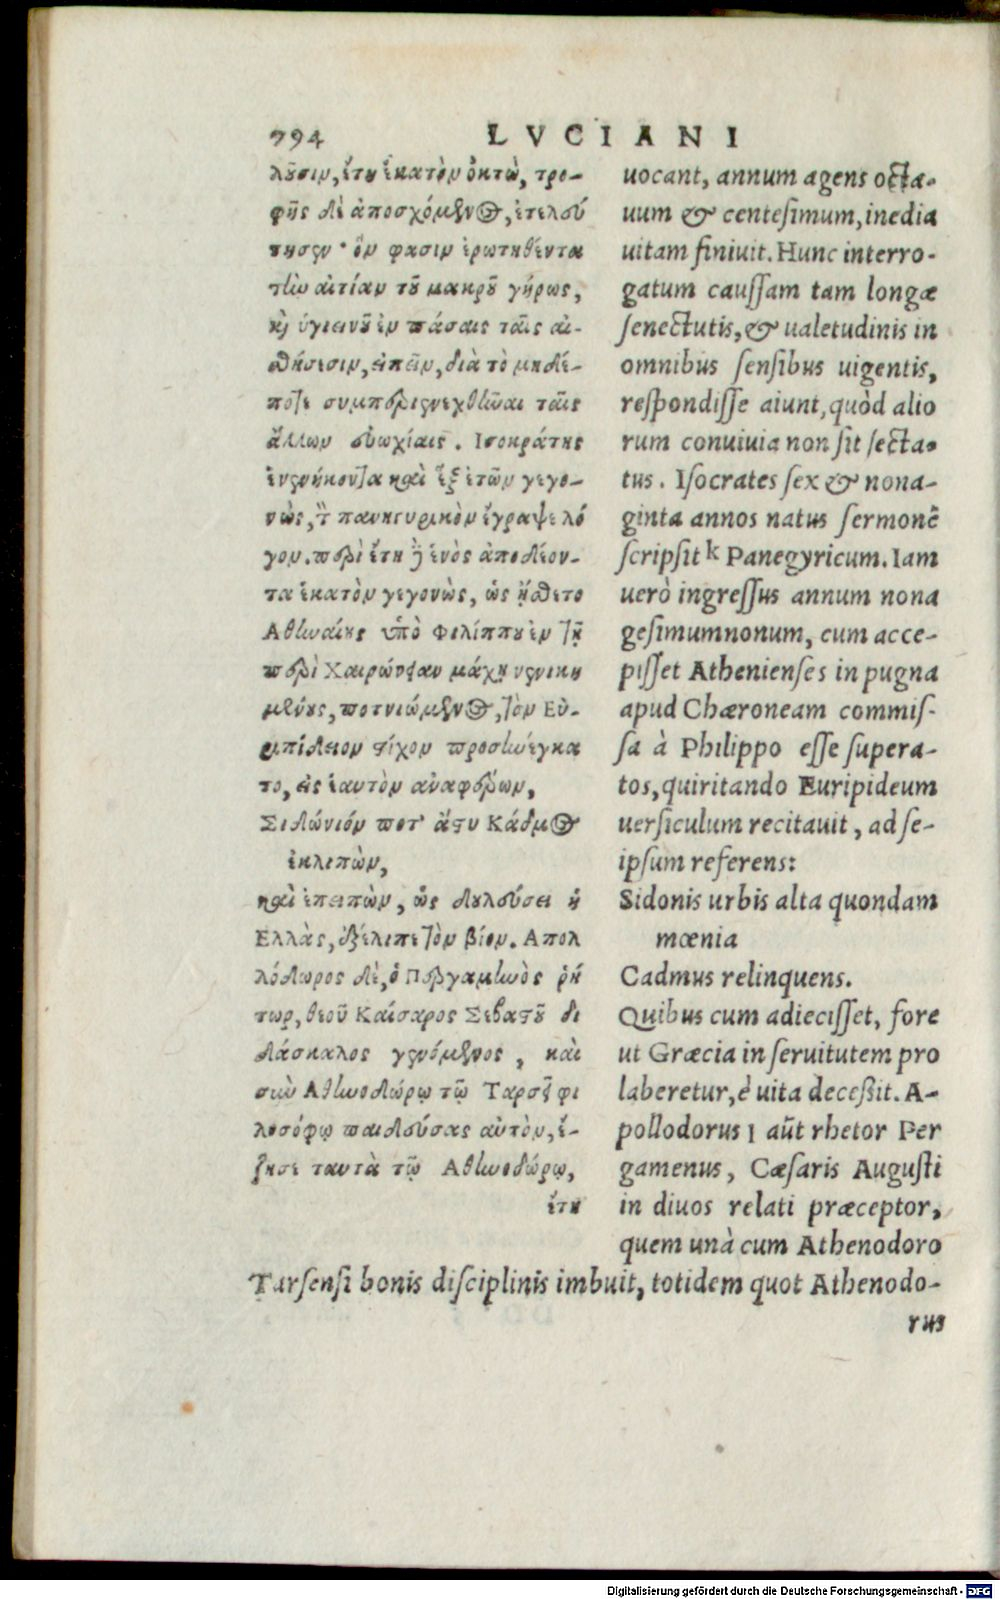 794 LVCIANI
λοῦσιν, ἔτη ἑκατὸν ὀκτὼ, τρο-
φῆς δὲ ἀποσχόμενος, ἐτελεύ
τησεν· ὅν φασιν ἐρωτηθέντα
τὴν αἰτίαν τοῦ μακροῦ γήρως,
καὶ ὑγιεινοῦ ἐν πάσαις ταῖς αἰ-
σθήσεσιν, εἰπεῖν, διὰ τὸ μηδέ-
ποτε συμπεριενεχθῆναι ταῖς
ἄλλων εὐωχίαις. Ισοκράτης
ἐνενήκοντα καὶ ἓξ ἐτῶν γεγο-
νὼς, τὸν πανηγυρικὸν ἔγραψε λό
γον. περὶ ἔτη δὲ ἑνὸς ἀποδέον-
τα ἑκατὸν γεγονὼς, ὡς ᾔσθετο
Αθηναίους ὑπὸ Φιλίππου ἐν τῇ
περὶ Χαιρώνειαν μάχῃ νενικη
μένους, ποτνιώμενος, τὸν Εὐ-
ριπίδειον στίχον προσηνέγκα
το, εἰς ἑαυτὸν ἀναφέρων,
Σιδώνιόν ποτ' ἄστυ Κάδμος
ἐκλιπὼν,
καὶ ἐπειπὼν, ὡς δουλεύσει ἡ
Ελλὰς, ἐξέλιπε τὸν βίον. Απολ
λόδωρος δὲ, ὁ Περγαμηνὸς ῥή
τωρ, θεοῦ Καίσαρος Σεβαστοῦ δι
δάσκαλος γενόμενος, καὶ
σὺν Αθηνοδώρῳ τῷ Ταρσεῖ φι
λοσόφῳ παιδεύσας αὐτὸν, ἔ-
ζησε ταυτὰ τῷ Αθηνοδώρῳ,
ἔτη
uocant, annum agens octa-
uum & centesimum, inedia
uitam finiuit. Hunc interro-
gatum caussam tam longæ
senectutis, & ualetudinis in
omnibus sensibus uigentis,
respondisse aiunt, quòd alio
rum conuiuia non sit secta-
tus. Isocrates sex & nona-
ginta annos natus sermonẽ
scripsit k Panegyricum. Iam
uerò ingressus annum nona
gesimumnonum, cum acce-
pisset Athenienses in pugna
apud Chæroneam commis-
sa à Philippo esse supera-
tos, quiritando Euripideum
uersiculum recitauit, ad se-
ipsum referens:
Sidonis urbis alta quondam
mœnia
Cadmus relinquens.
Quibus cum adiecisset, fore
ut Græcia in seruitutem pro
laberetur, è uita decessit. A-
pollodorus l aũt rhetor Per
gamenus, Cæsaris Augusti
in diuos relati præceptor,
quem unà cum Athenodoro
Tarsensi bonis disciplinis imbuit, totidem quot Athenodo-
rus
Digitalisierung gefördert durch die Deutsche Forschungsgemeinschaft - DFG